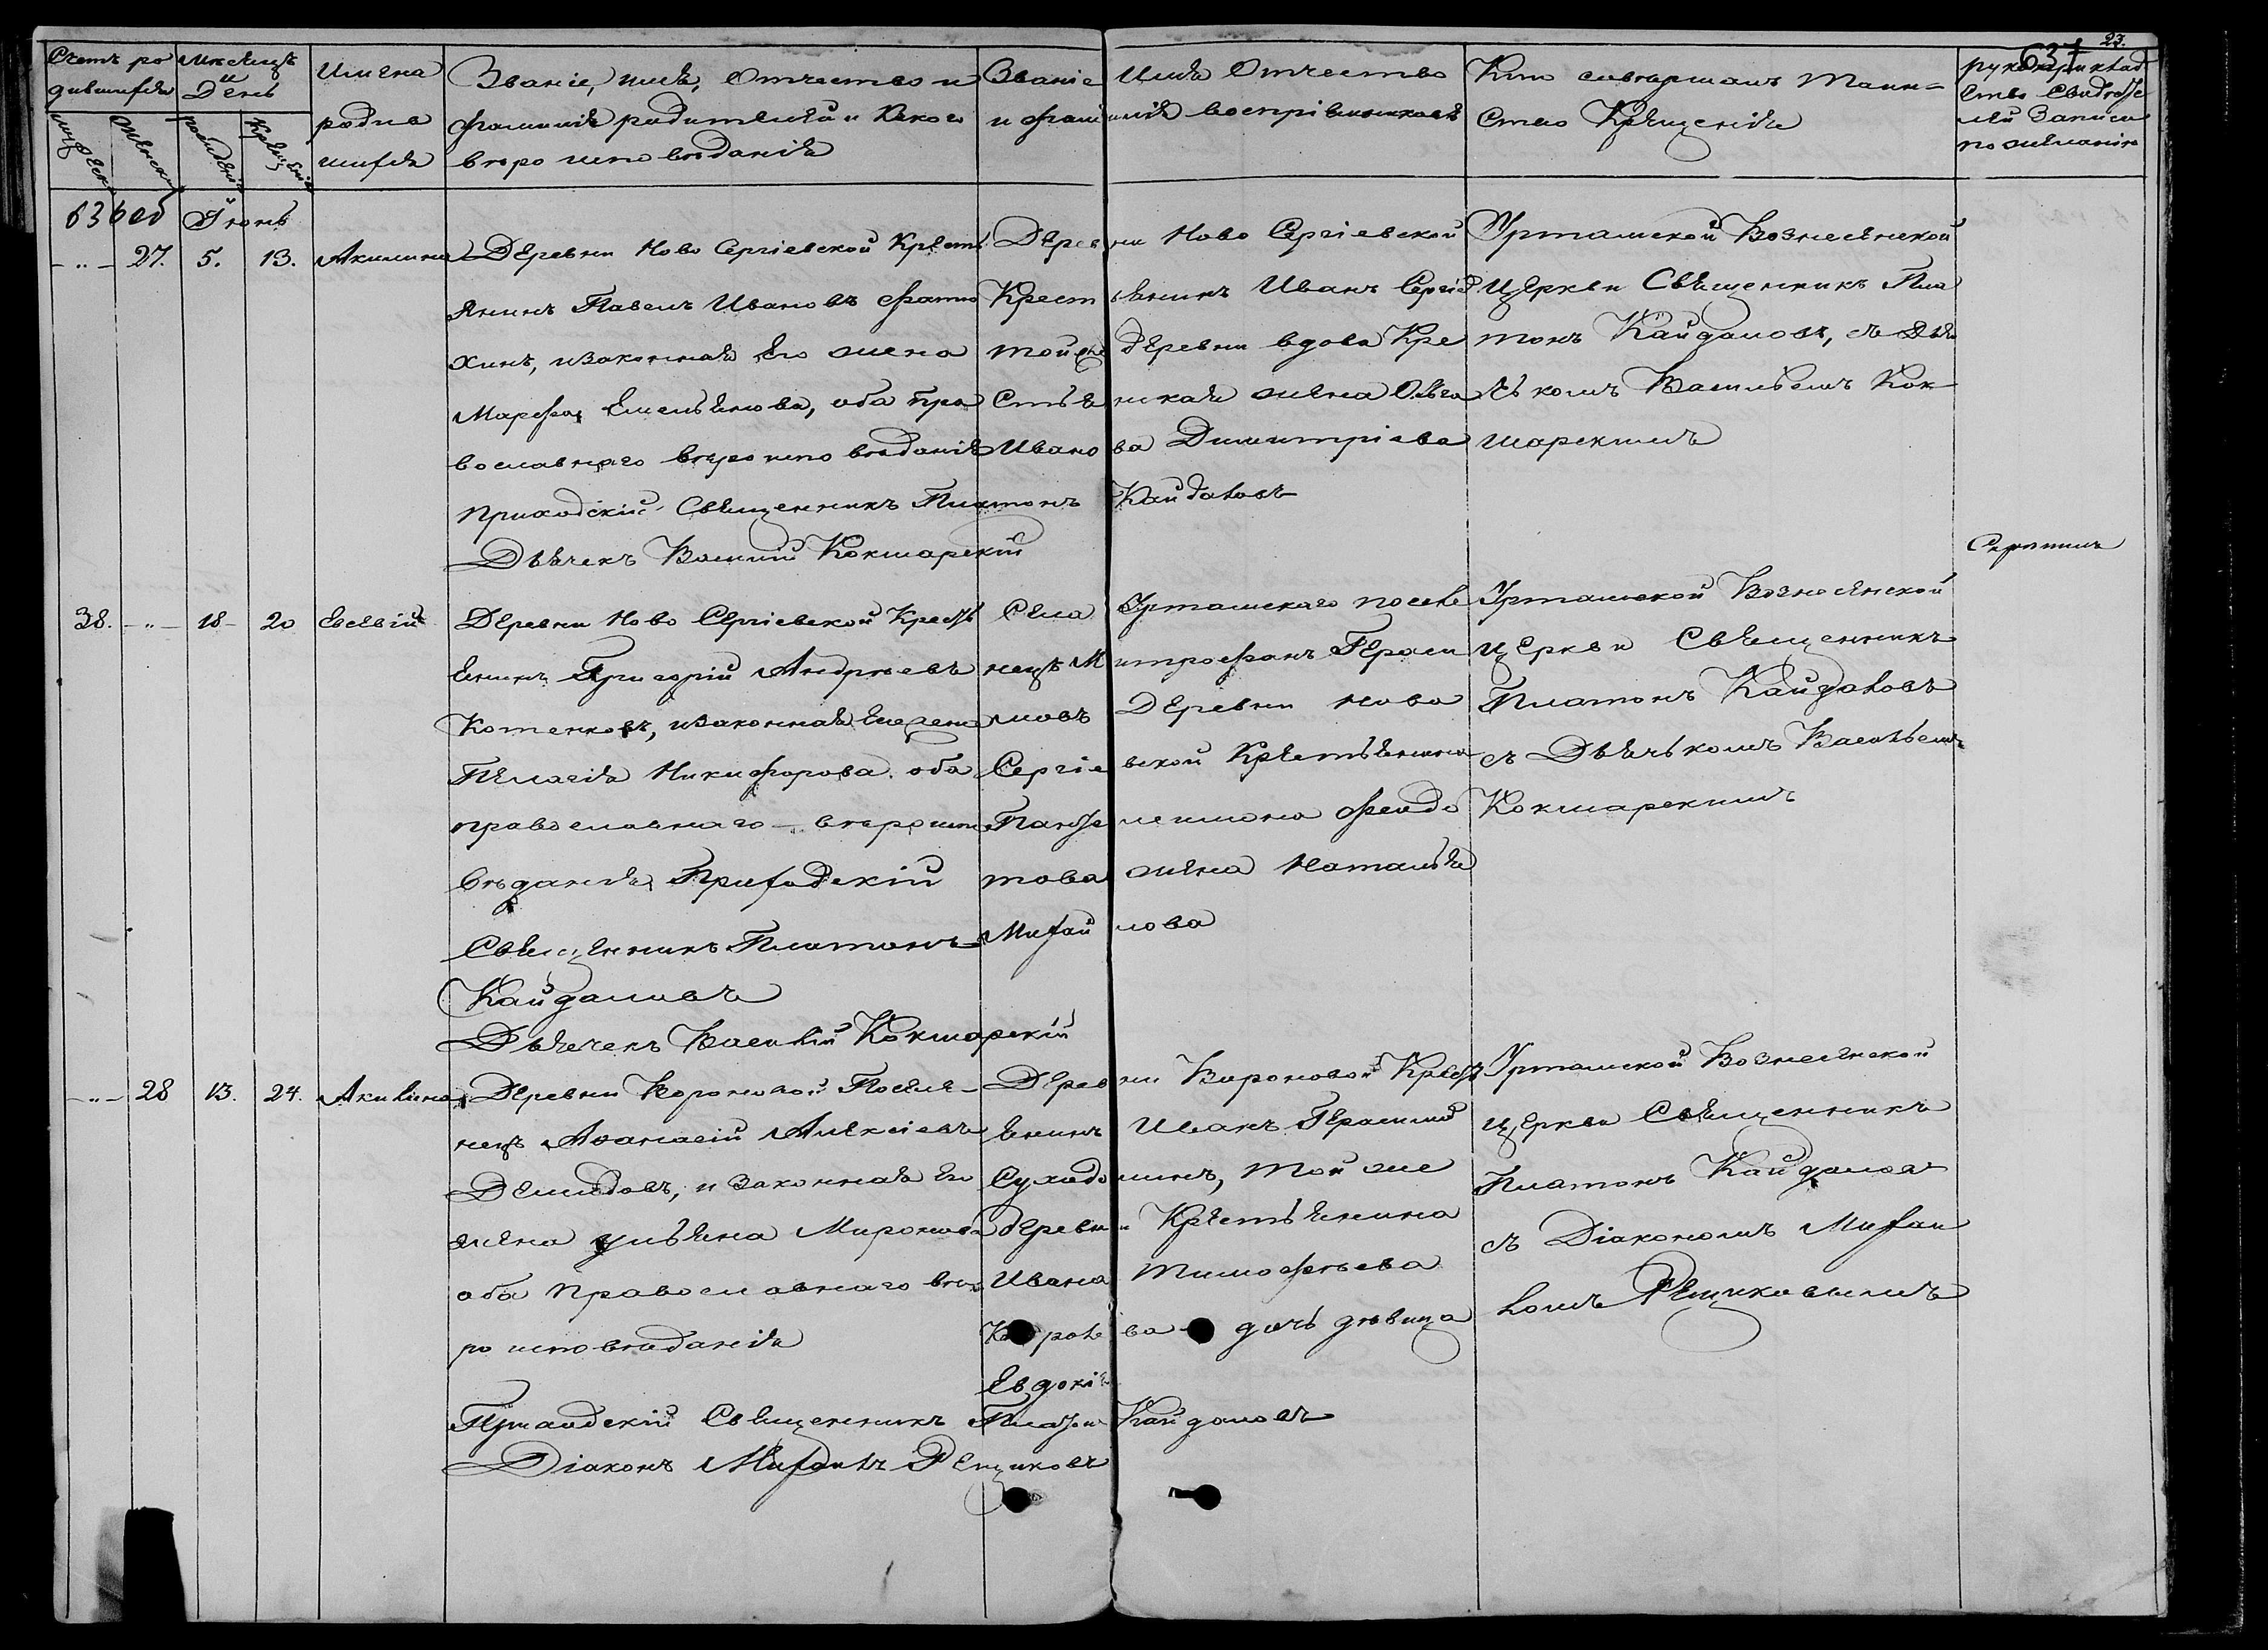 23.
637
Счетъ ро
дившихся
Мѣсяцъ
и
День
Имена
родив
шихся
Званіе, имя, Отчество и
фамилія родителей и Какого
вѣро исповѣданія
Званіе Имя Отчество
и фамилія воспріемниковъ
Кто совершалъ Таин=
ство Крещенія
рукоприклад
ство Свидѣте
лей Записи
по желанію
муж. женск.
рожденія Крещенія
63 об Іюнь
-"- 27. 5. 13. Акилина
Деревни Ново Сергіевской Кресть
янинъ Павелъ Ивановъ
хинъ, и законная Его жена
Марфа Емельянова, оба пра
вославнаго вѣро исповѣданія
Приходскій Священникъ Платонъ Кайдаловъ
Дьячекъ Василій Кокшарскій
Деревни Ново Сергіевской
Крестьянинъ Иванъ Сергіе
той же деревни вдова Кре
стьянская жена Ольга
Иванова Димитріева
Урташской Вознесенской
Церкви Священникъ Пла
тонъ Кайдаловъ, съ Дья
чькомъ Васильемъ Кок
шарскимъ
38. -"- 18 20 Евсевій
Деревни Ново Сергіевской Кресть
янинъ Григорій Андреевъ
Котенковъ, и законная Его жена
Пелагія Никифорова. оба
православнаго вѣро испо
вѣданія Приходскій
Священникъ Платонъ
Кайдаловъ
Дьячекъ Василій Кокшарскій
Села Урташскаго поселе
нецъ Митрофанъ Гераси
мовъ Деревни Ново
Сергіевской Крестьянина
Пантелеимона Федо
това жена Наталья
Михайлова
Урташской Вознесенской
церкви Священникъ
Платонъ Кайдаловъ
съ Дьячькомъ Васильемъ
Кокшарскимъ
-"- 28 13. 24. Акилина
Деревни Вороновой Поселе-
нецъ Аѳанасій Алексіевъ
Демидовъ, и законная Его
жена Ульяна Миронова
оба Православнаго вѣ
ро исповѣданія
Приходскій Священникъ Платонъ Кайдаловъ
Діаконъ Михаилъ Рещиковъ
Деревни Вороновой Кресть
янинъ Иванъ Герасимо
Суходолинъ, той же
деревни Крестьянина
Ивана Тимофѣева
ва дочь дѣвица
Евдокія
Урташской Вознесенской
церкви Священникъ
Платонъ Кайдаловъ
съ Діакономъ Михаи
ломъ Рещиковымъ